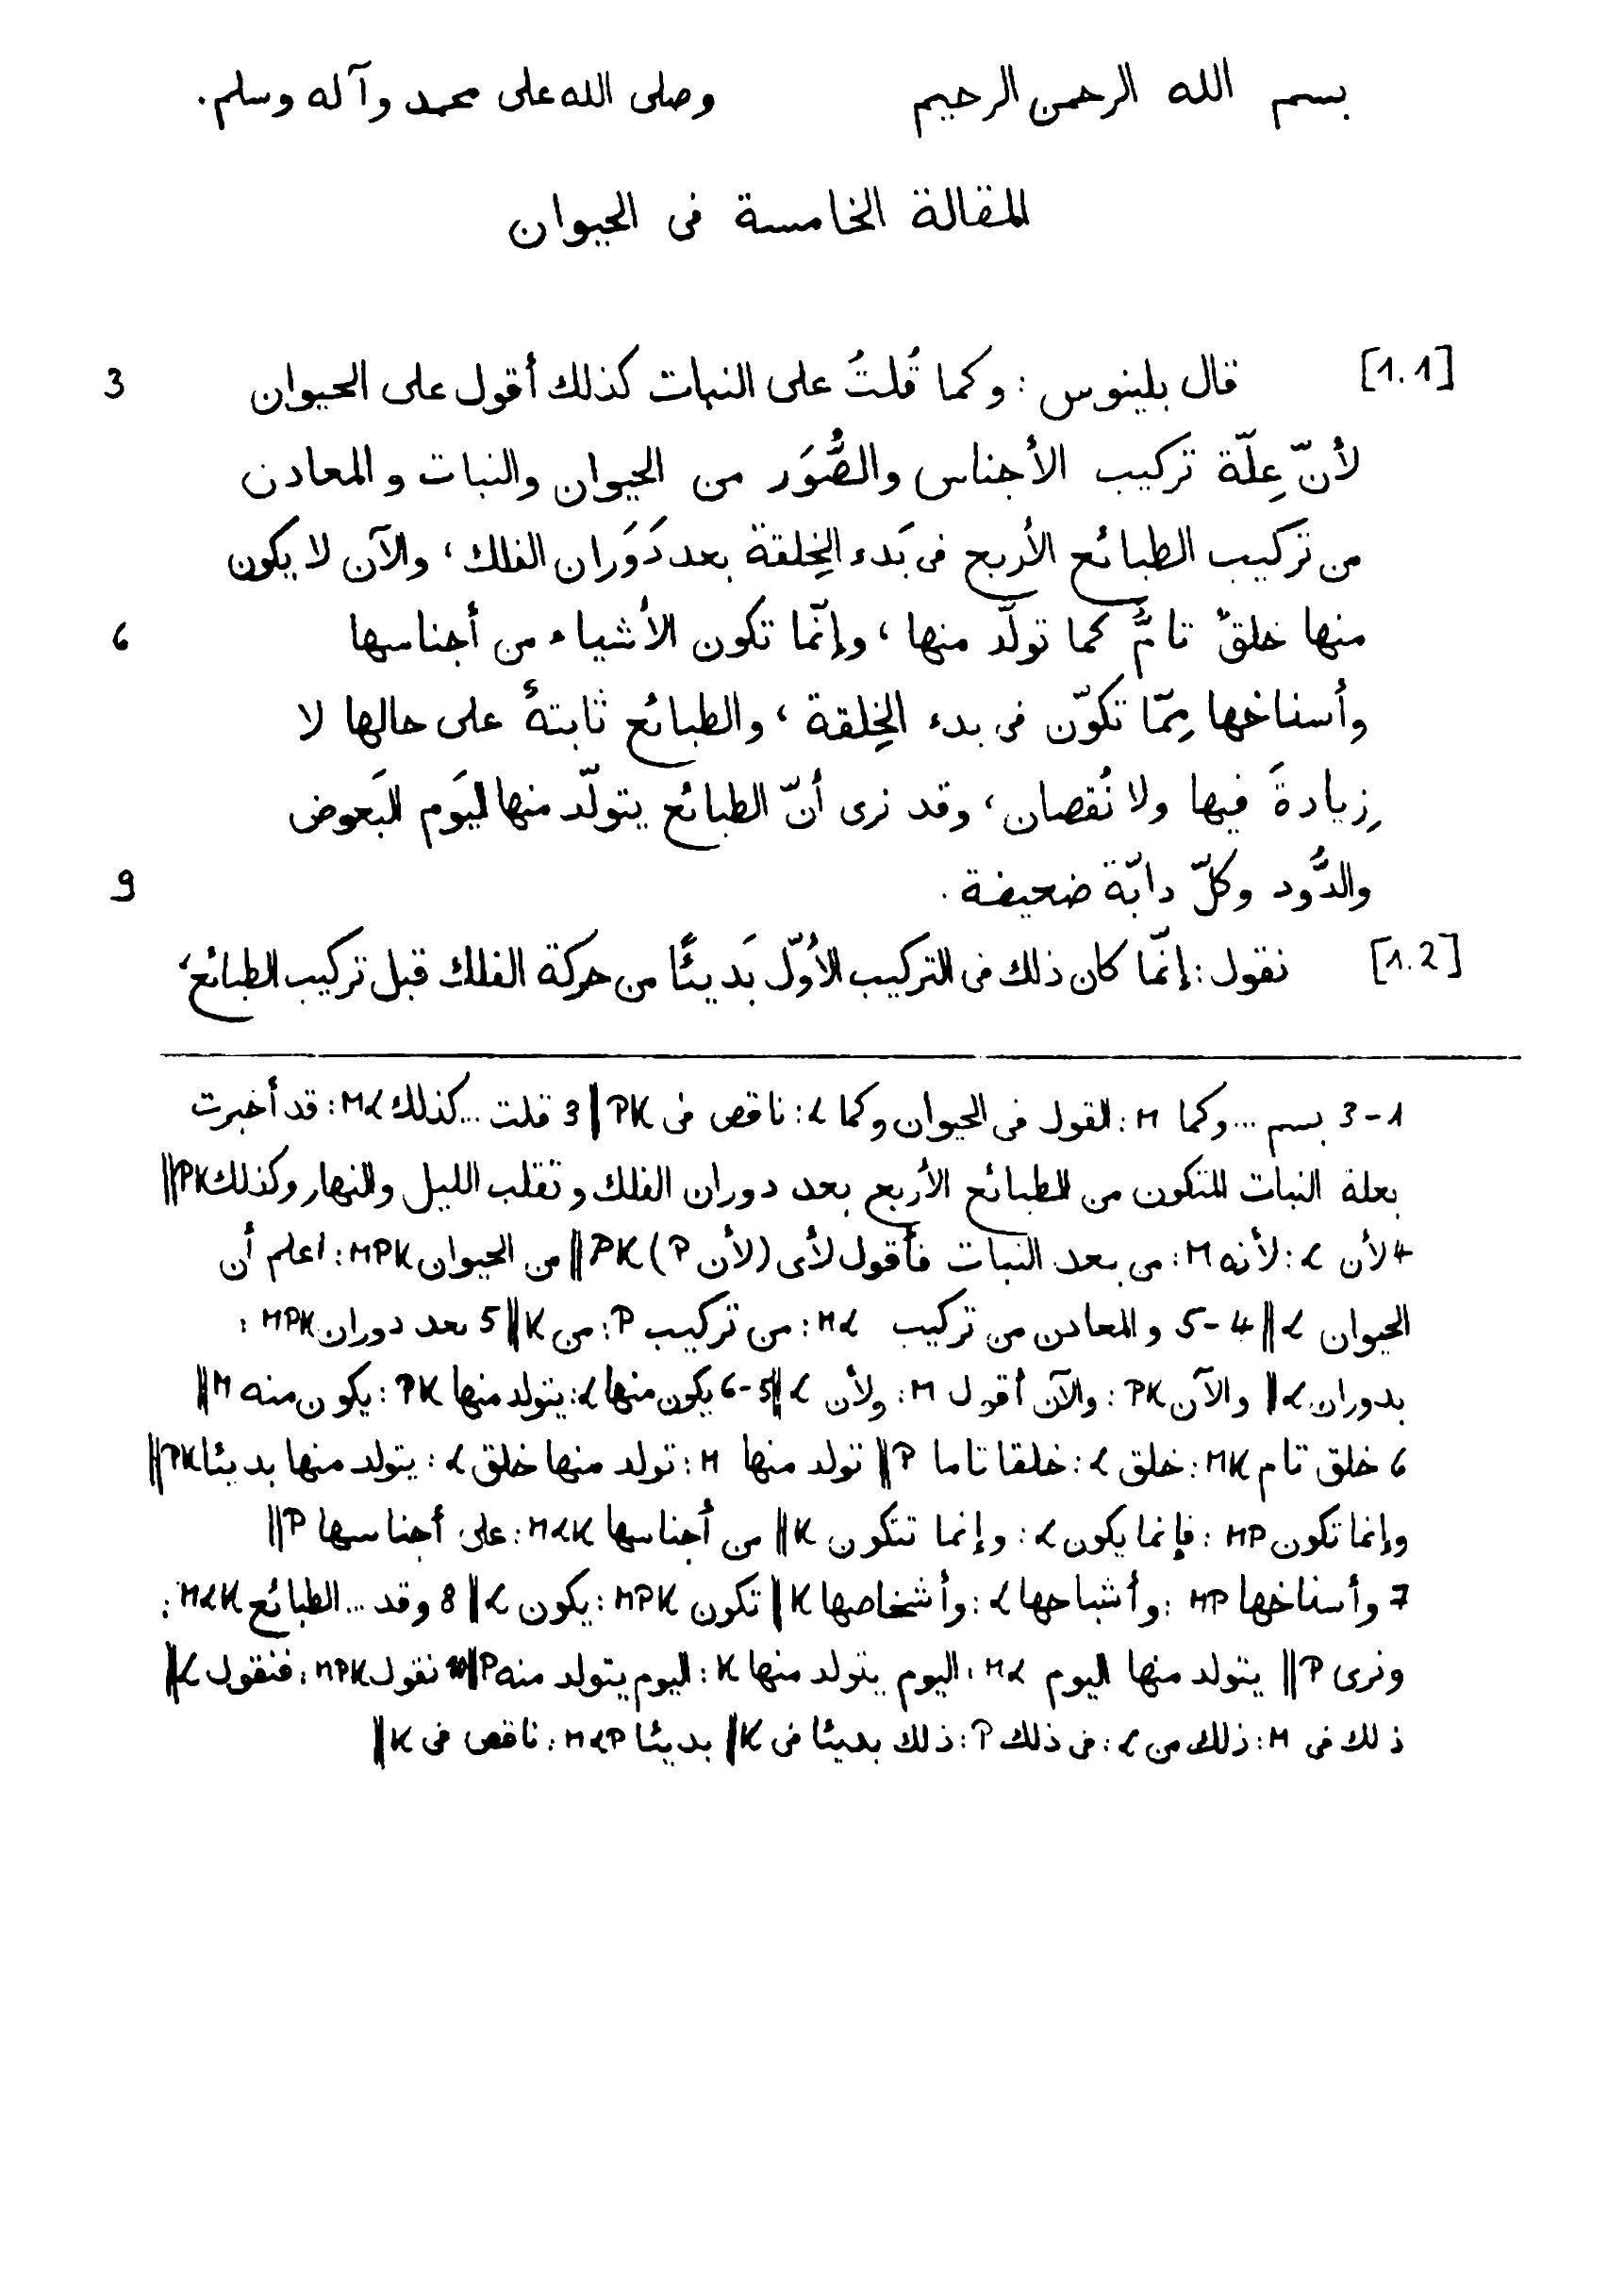 بسم الله الرحمن الرحيم وصلى الله على محمد وآله وسلم.
المقالة الخامسة فى الحيوان
[1.1] قال بلينوس : وكما قُلتُ على النبات كذلك أقول على الحيوان 3
لأنّ عِلّة تركيب الأجناس والصُّوَر من الحيوان والنبات والمعادن
من تركيب الطبائع الأربع فى بَدء الخِلقة بعد دَوَران الفلك، والآن لا يكون
منها خلقٌ تامٌّ كما تولّد منها، وإنّما تكون الأشياء من أجناسها 6
وأسناخها مِمّا تكوّن فى بدء الخِلقة، والطبائع ثابتةٌ على حالها لا
زِيادةَ فيها ولا نُقصان، وقد نرى أنّ الطبائع يتولّد منها اليَوم البَعوض
والدُّود وكلّ دابّة ضعيفة. 9
[1.2] نقول: إنّما كان ذلك فى التركيب الأوّل بَديئًا من حركة الفلك قبل تركيب الطبائع،
1-3 بسم ... وكما M: القول فى الحيوان وكما L: ناقص فى PK || 3 قلت ... كذلك ML: قد أخبرت
بعلة النبات المتكون من الطبائع الأربع بعد دوران الفلك وتقلب الليل والنهار وكذلك PK ||
4 لأن L: لأنه M: من بعد النبات فأقول لأى (لأن P) PK || من الحيوان MPK: اعلم أن
الحيوان L || 4-5 والمعادن من تركيب ML: من تركيب P: من K || 5 بعد دوران MPK:
بدوران L || والآن PK: والآن أقول M: ولأن L || 5-6 يكون منها L: يتولد منها PK: يكون منه M ||
6 خلق تام MK: خلق L: خلقا تاما P || تولد منها M: تولد منها خلق L: يتولد منها بديئا PK ||
وإنما تكون MP: فإنما يكون L: وإنما تتكون K || من أجناسها MLK: على أجناسها P ||
7 وأسناخها MP: وأشباحها L: وأشخاصها K || تكون MPK: يكون L || 8 وقد ... الطبائع MLK:
ونرى P || يتولد منها اليوم ML: اليوم يتولد منها K: اليوم يتولد منه P || 10 نقول MPK: فنقول L ||
ذلك فى M: ذلك من L: فى ذلك P: ذلك بديئا فى K || بديئا MLP: ناقص فى K ||